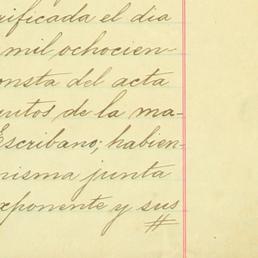 rificada el dia
mil, ochocien-
onsta del acta
utos, de la ma-
Escribano; habien-
misma junta
xponente y sus
#